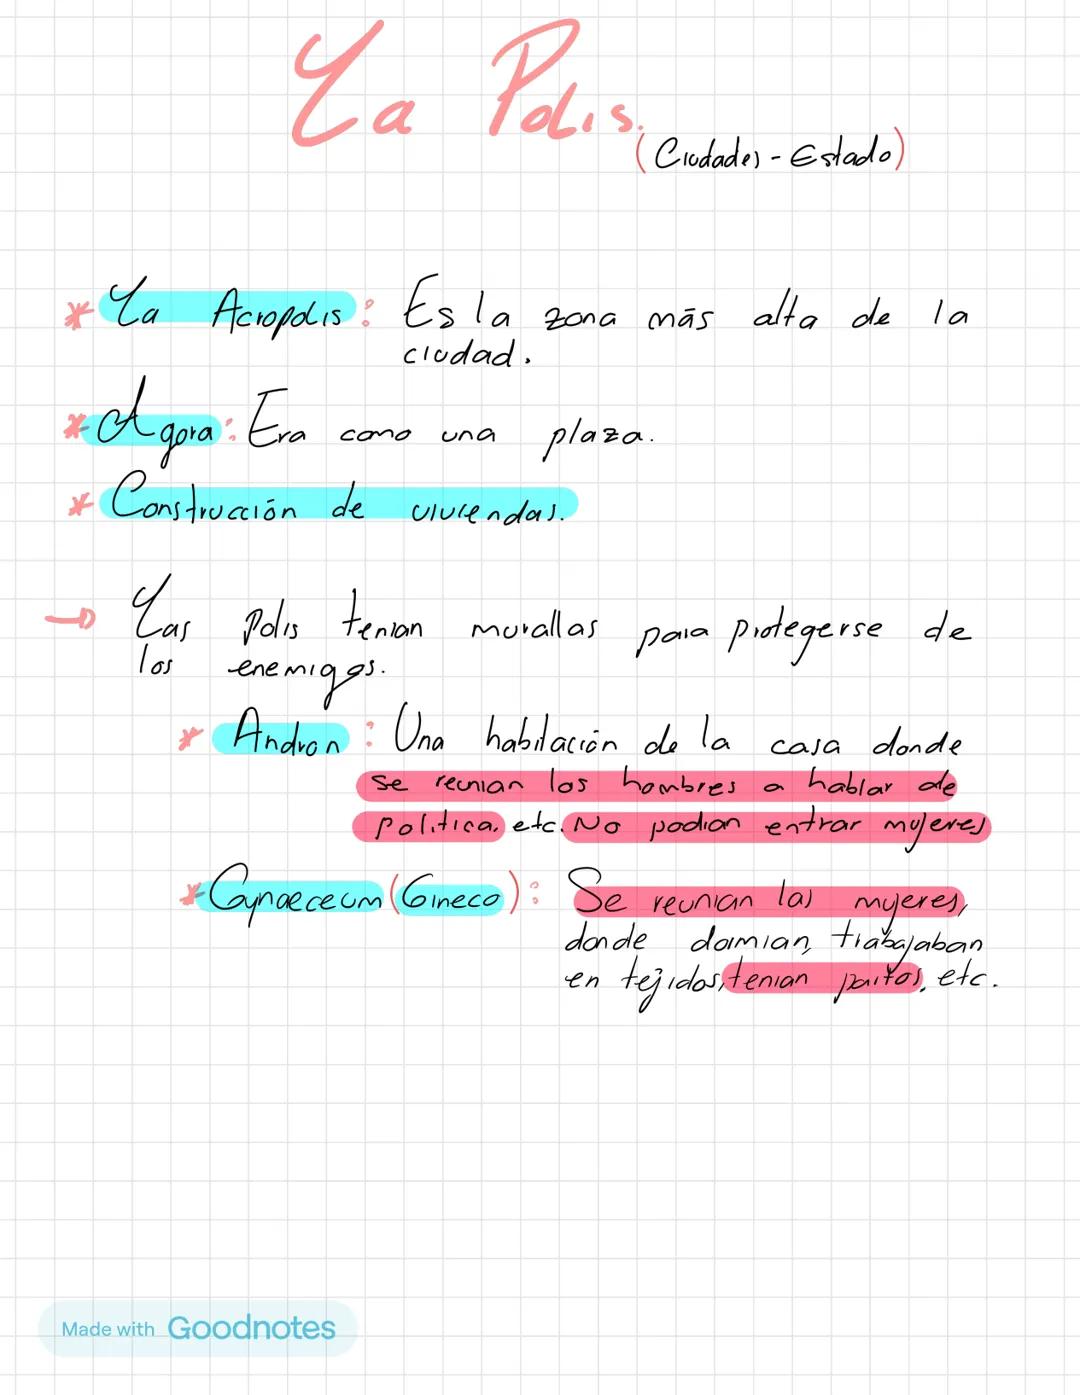 La Polis.
(Ciudades - Estado)
* La Acropolis: Es la zona más alta de la
ciudad.
* Agora: Era como una plaza.
* Construcción de viviendas.
→ Las Polis tenian murallas para protegerse de
los enemigos.
* Andron: Una habitación de la casa donde
se reunian los hombres a hablar de
politica, etc. No podian entrar mujeres
* Gynaeceum (Gineco): Se reunian las mujeres,
donde dormian, trabajaban
en tejidos, tenian partos, etc.
Made with Goodnotes